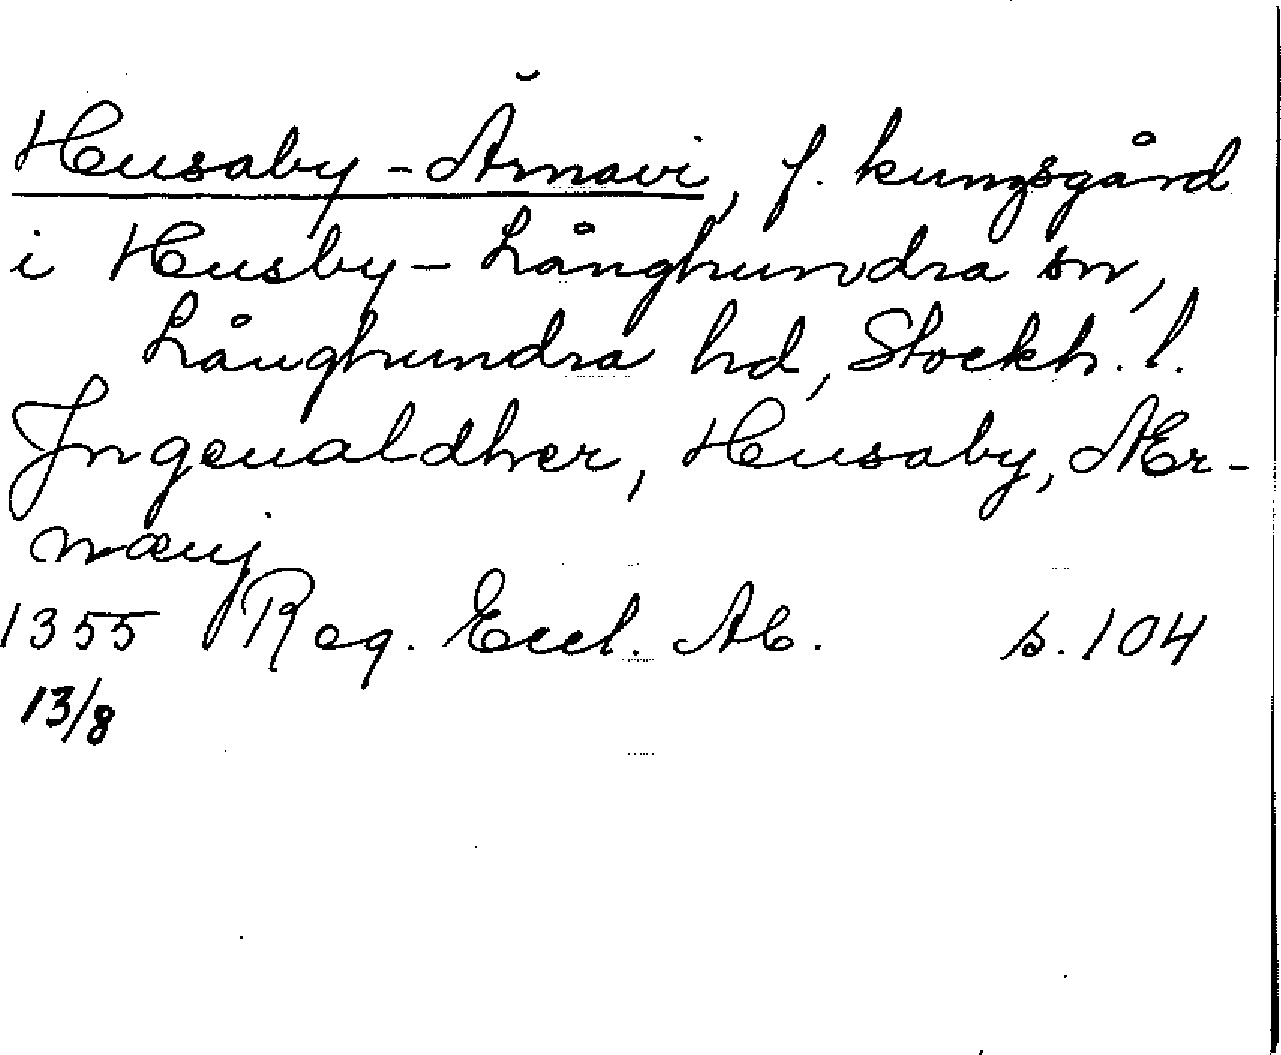 Husaby-Ärnavi, f. kungsgård
i Husby-Långhundra sn,
Långhundra hd, Stockh. l.
Ingeualdher, Husaby, Ær-
næuj
1355 Reg. Eccl. Ab. s. 104
13/8